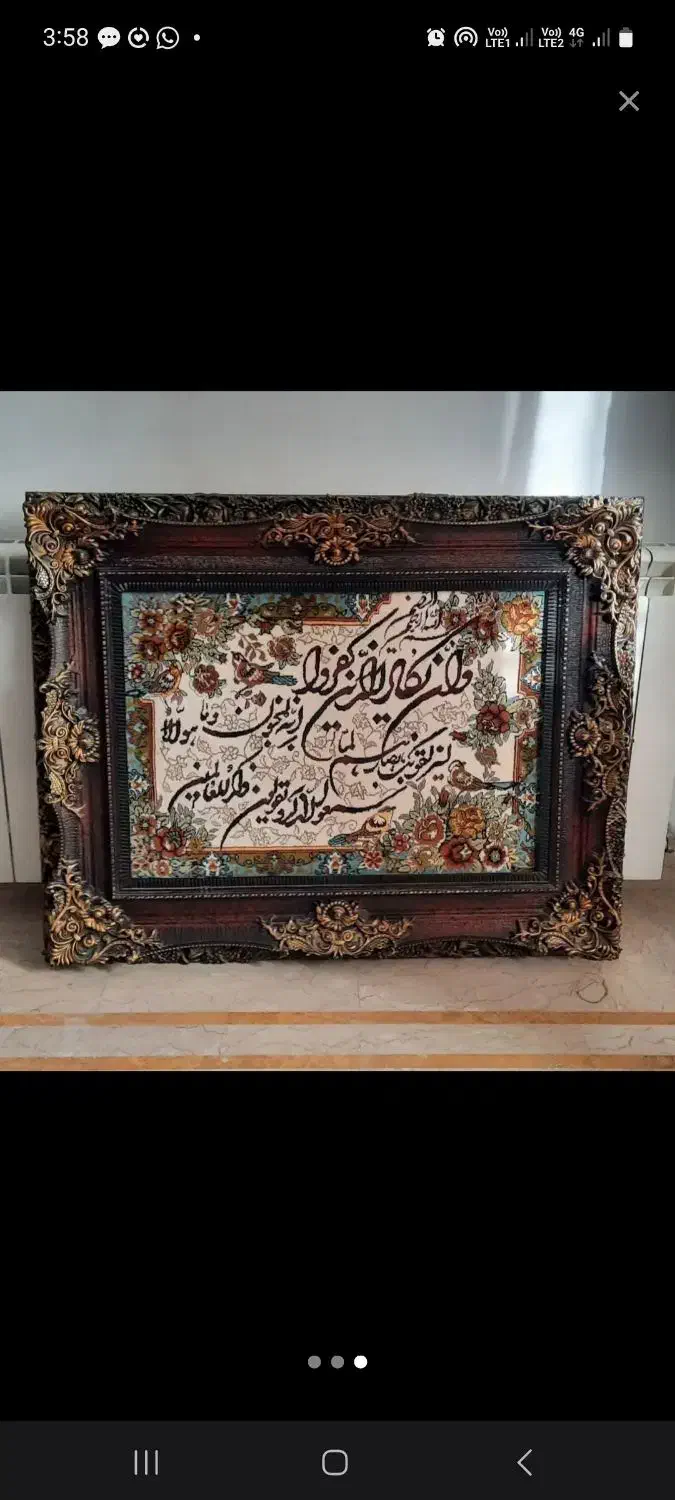 3:58
Vo)) LTE1 Vo)) LTE2 4G
الله الرحمن الرحیم
وان یکاد الذین کفروا
لیزلقونک بابصارهم لما
سمعوا الذکر و یقولون
انه لمجنون وما هو الا
ذکر للعالمین